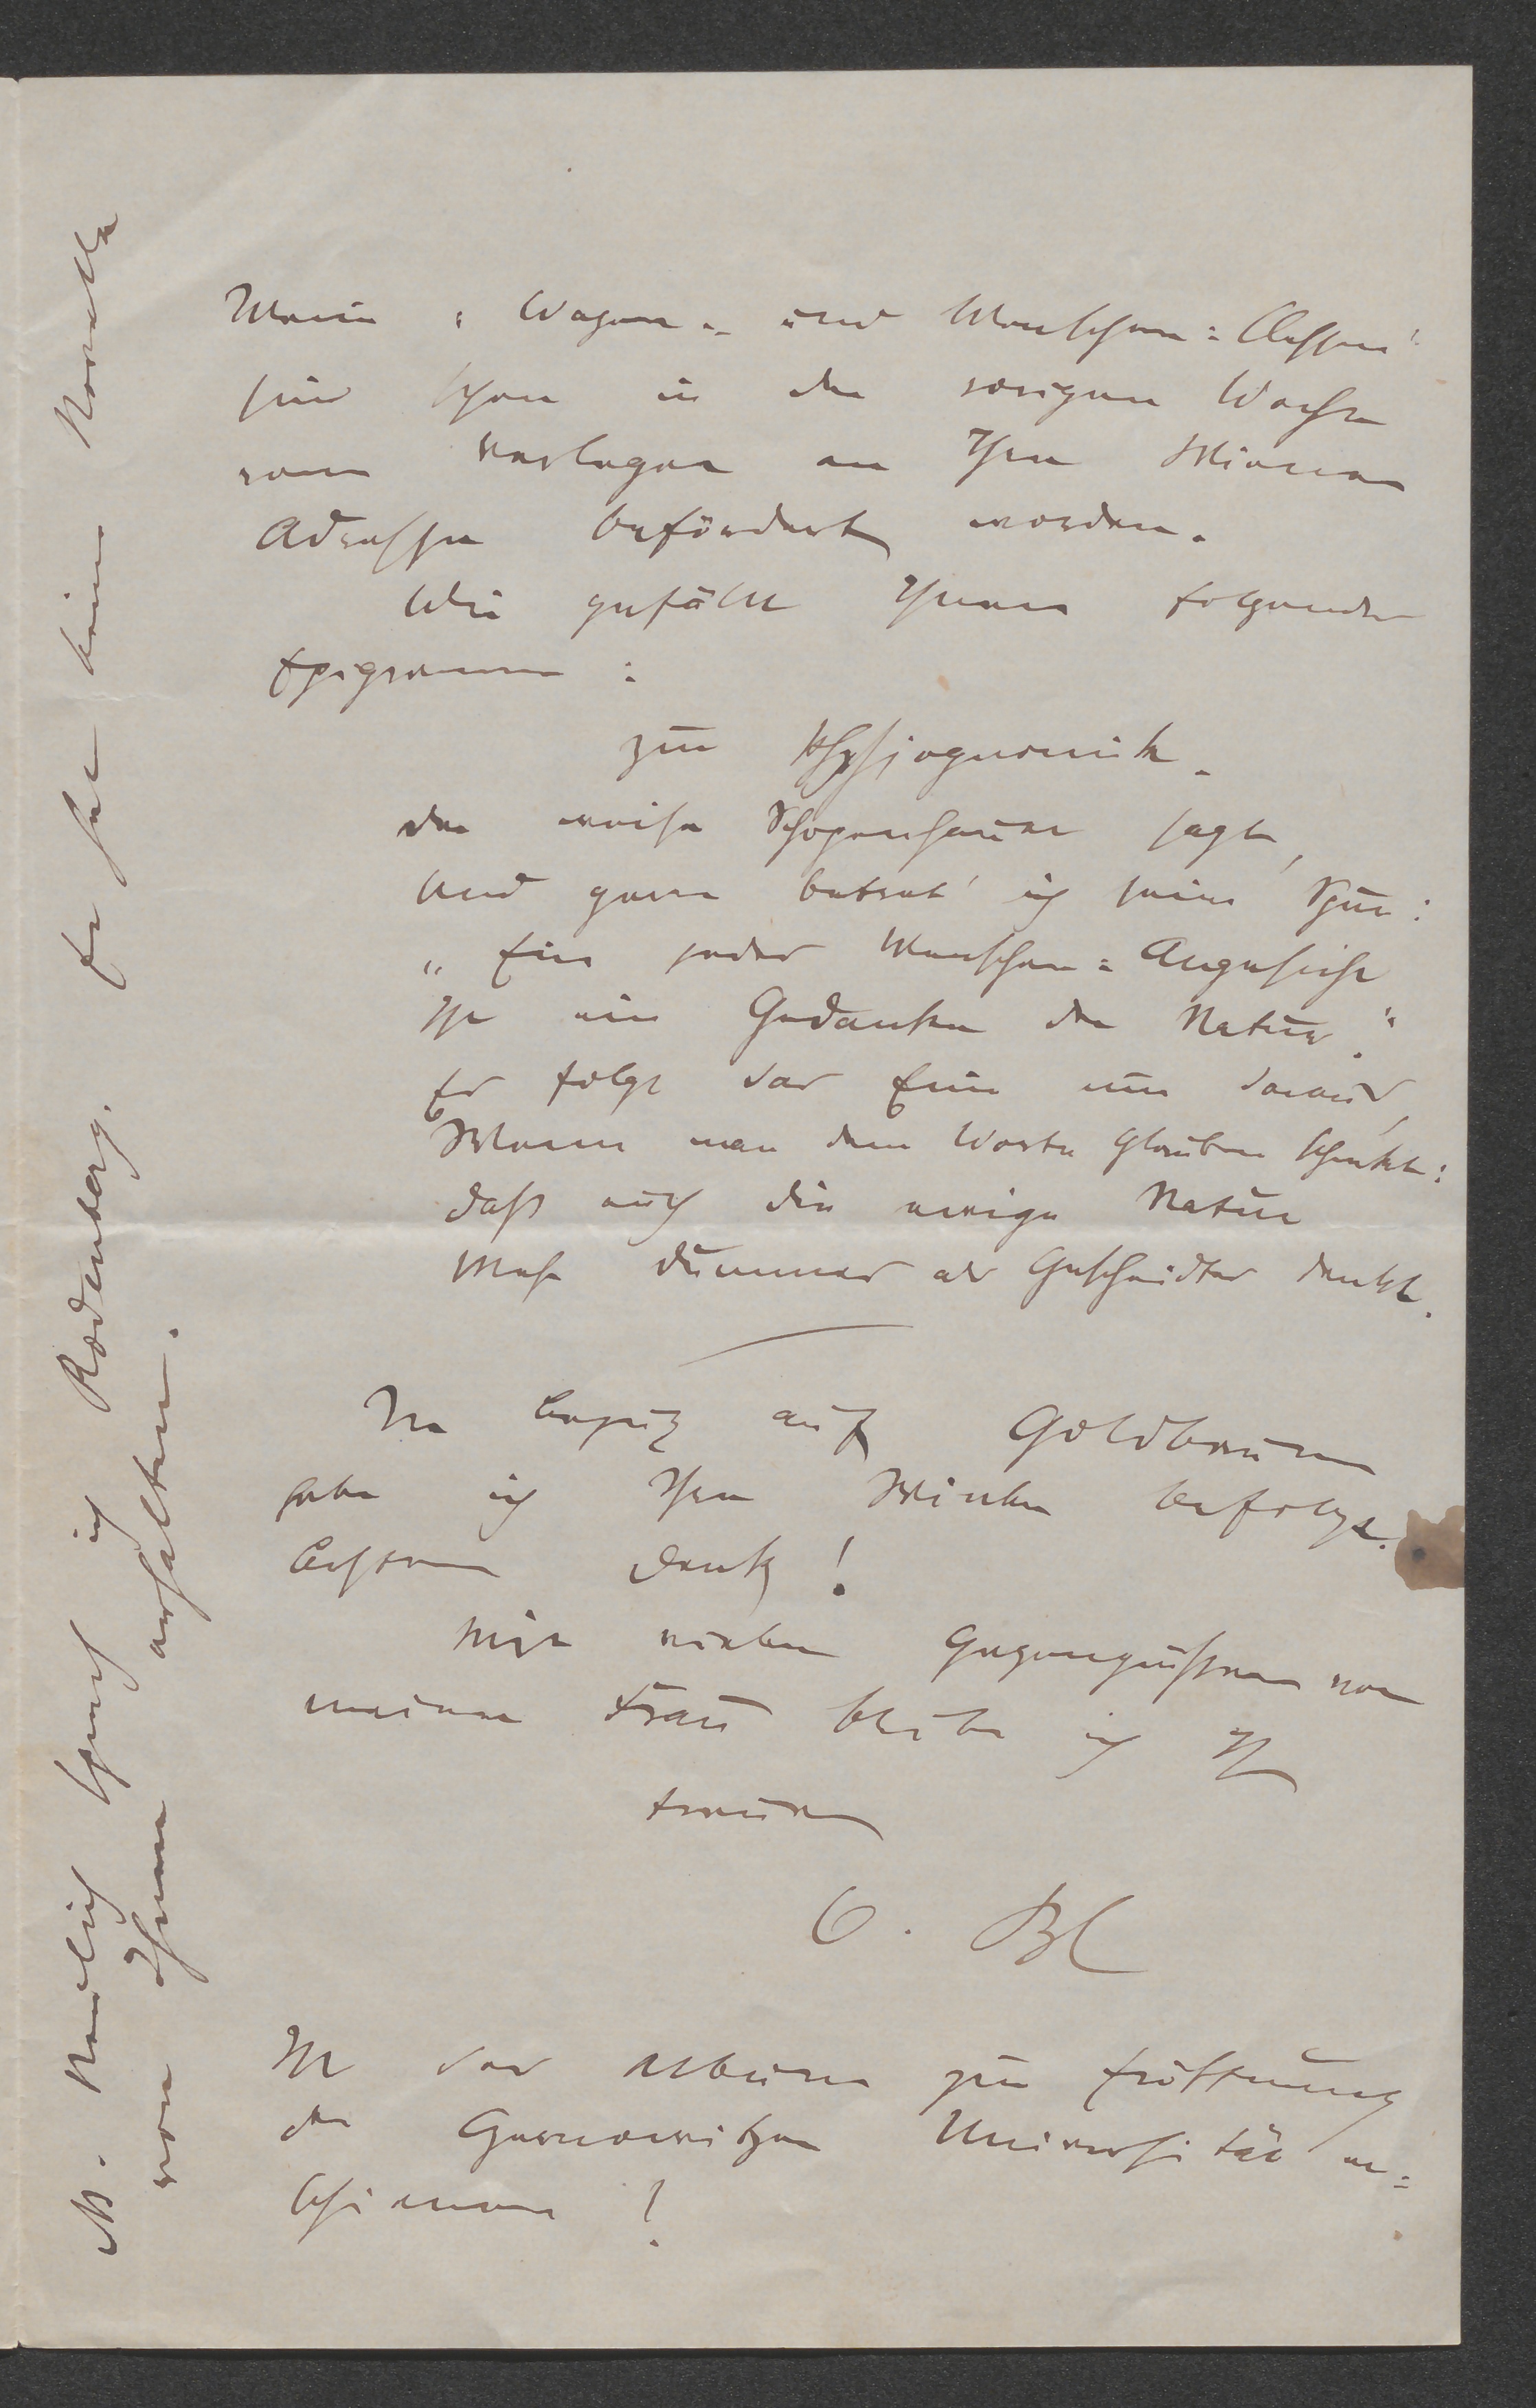 Meine „Wagen- und Menschen=Classen“
sind schon in der vorigen Woche
vom Verleger an Ihre Wiener
Adresse befördert worden.
Wie gefällt Ihnen folgendes
Epigramm:
Zur Physiognomik.
Der weise Schopenhauer sagt,
Und gern betret' ich seine Spur:
„Ein jedes Menschen=Angesicht
Ist ein Gedanke der Natur.“
Es folgt das Eine nur daraus,
Wenn man dem Worte Glauben schenkt:
Daß auch die ewige Natur
Mehr Dummes als Gescheidtes denkt.
In Bezug auf Goldbaum
habe ich Ihre Winke befolgt.
Besten Dank!
Mit vielen Gegengrüßen von
meiner Frau bleibe ich Ihr
treuer
O. Bl
Ist das Album zur Eröffnung
der Czernowitzer Universität er=
schienen?
N. Neulich sprach ich Rodenberg. Er hat keine Novelle
von Ihnen erhalten.